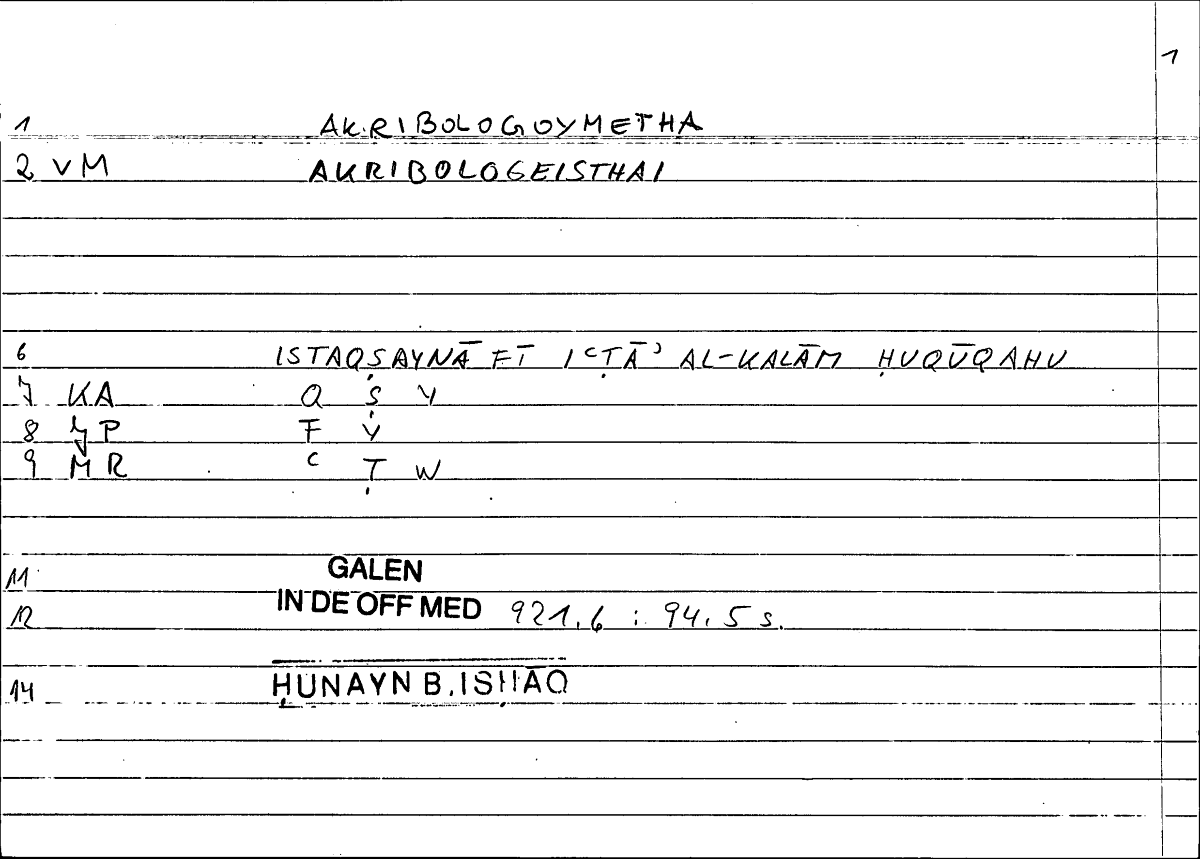 1
1 AKRIBOLOGOYMETHA
2 VM AKRIBOLOGEISTHAI
6 ISTAQṢAYNĀ FĪ IʿṬĀʾ AL-KALĀM ḤUQŪQAHU
7 KA Q Ṣ Y
8 P F Y
9 MR ʿ Ṭ W
11 GALEN
12 IN DE OFF MED 921.6 : 94.5 s.
14 ḤUNAYN B. ISḤĀQ